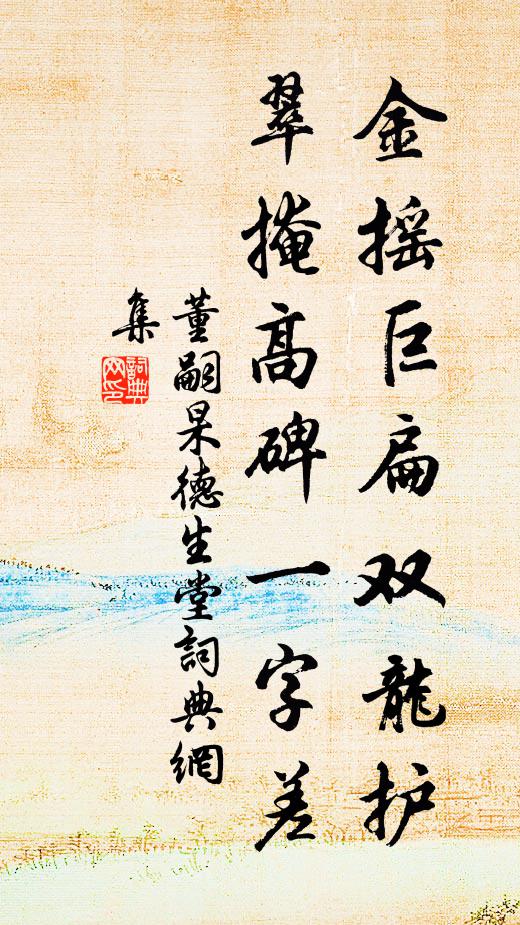 金摇巨扁双龍护
翠掩高碑一字差
董嗣杲德生堂詞典網
集
詞典
网印